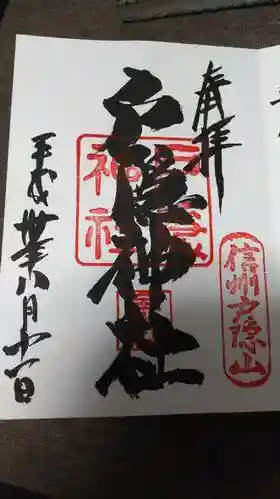 奉拝
戸隠神社
信州戸隠山
神社
平成卅年八月十一日